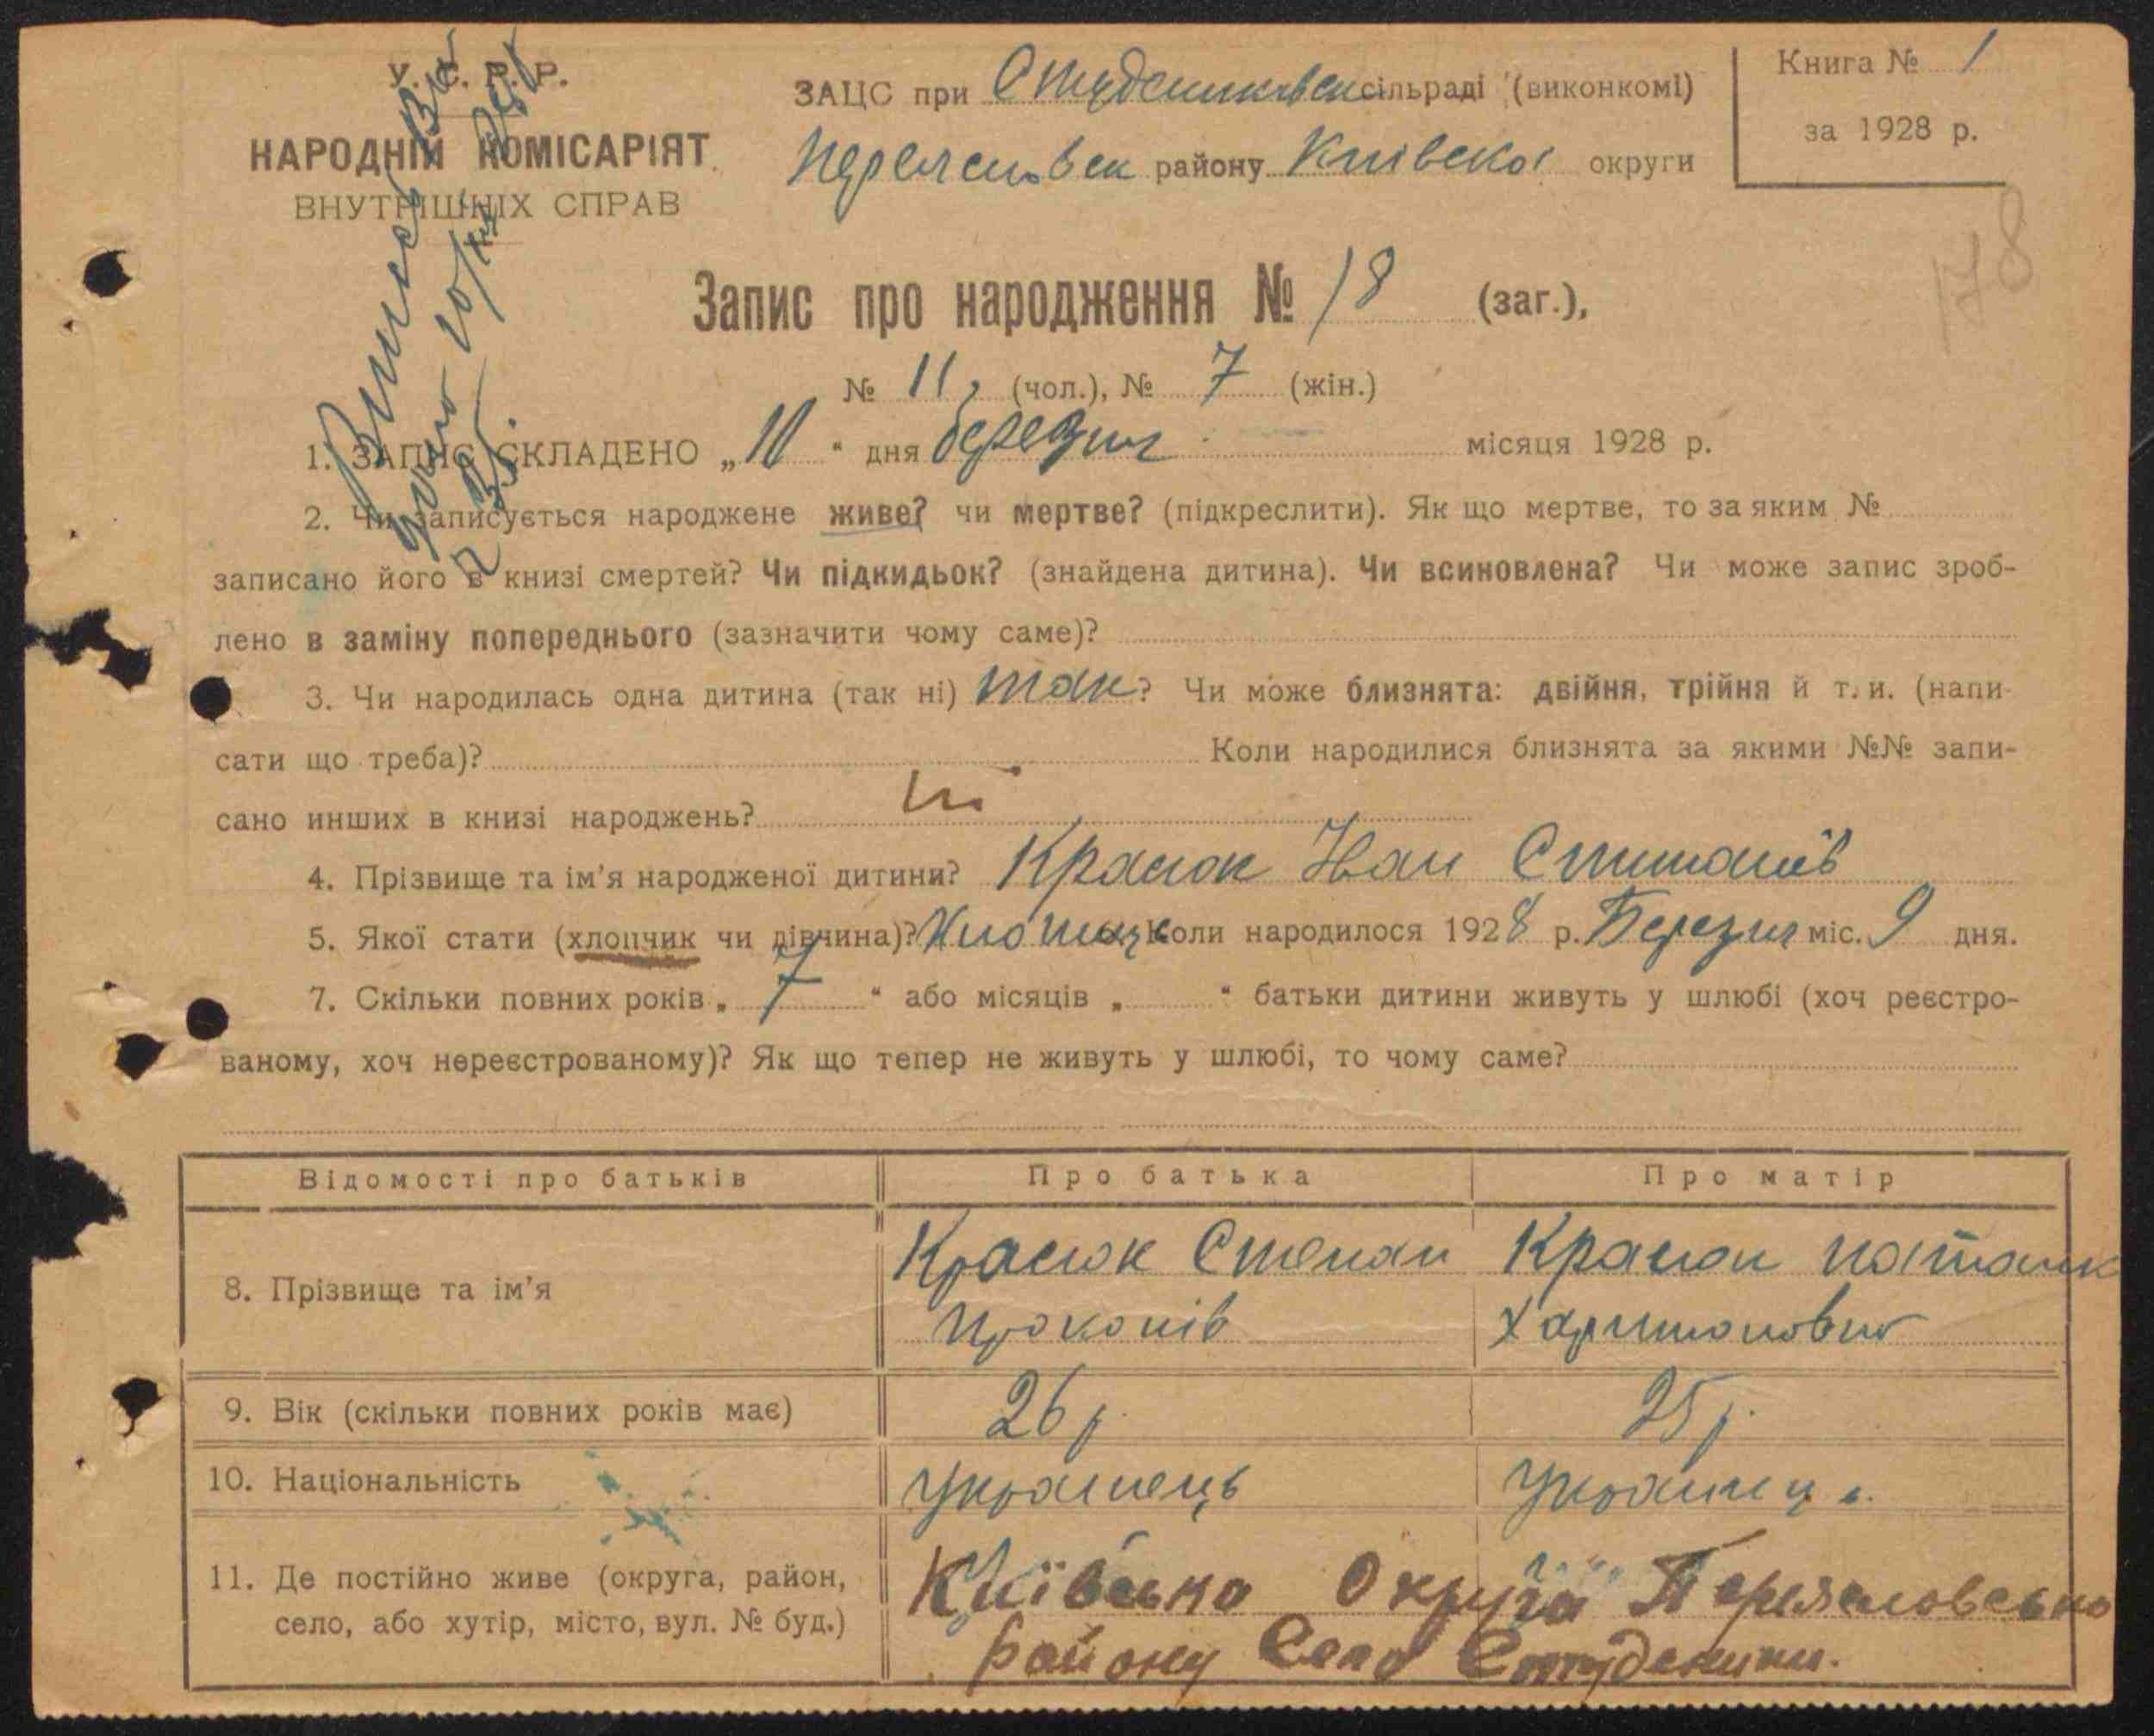 У. С. Р. Р.
НАРОДНІЙ КОМІСАРІЯТ
ВНУТРІШНІХ СПРАВ
ЗАЦС при Студениківск сільраді (виконкомі)
Переяславск району Київскої округи
Книга № 1
за 1928 р.
178
Запис про народження № 18 (заг.),
№ 11, (чол.), № 7 (жін.)
1. ЗАПИС СКЛАДЕНО „10“ дня березня місяця 1928 р.
2. Чи записується народжене живе? чи мертве? (підкреслити). Як що мертве, то за яким №
записано його в книзі смертей? Чи підкидьок? (знайдена дитина). Чи всиновлена? Чи може запис зроб-
лено в заміну попереднього (зазначити чому саме)?
3. Чи народилась одна дитина (так ні) так? Чи може близнята: двійня, трійня й т. и. (напи-
сати що треба)? Коли народилися близнята за якими №№ запи-
сано инших в книзі народжень? ні
4. Прізвище та ім'я народженої дитини? Красюк Іван
5. Якої стати (хлопчик чи дівчина)? Коли народилося 1928 р. Березня міс. 9 дня.
7. Скільки повних років „7“ або місяців „ “ батьки дитини живуть у шлюбі (хоч реєстро-
ваному, хоч нереєстрованому)? Як що тепер не живуть у шлюбі, то чому саме?
Відомості про батьків Про батька Про матір
8. Прізвище та ім'я Красюк Степан Прокопів Красюк
9. Вік (скільки повних років має) 26 р. 25 р.
10. Національність Українець Українка
11. Де постійно живе (округа, район, село, або хутір, місто, вул. № буд.) Київсько Округа Переяславсько
району Село Студеники.